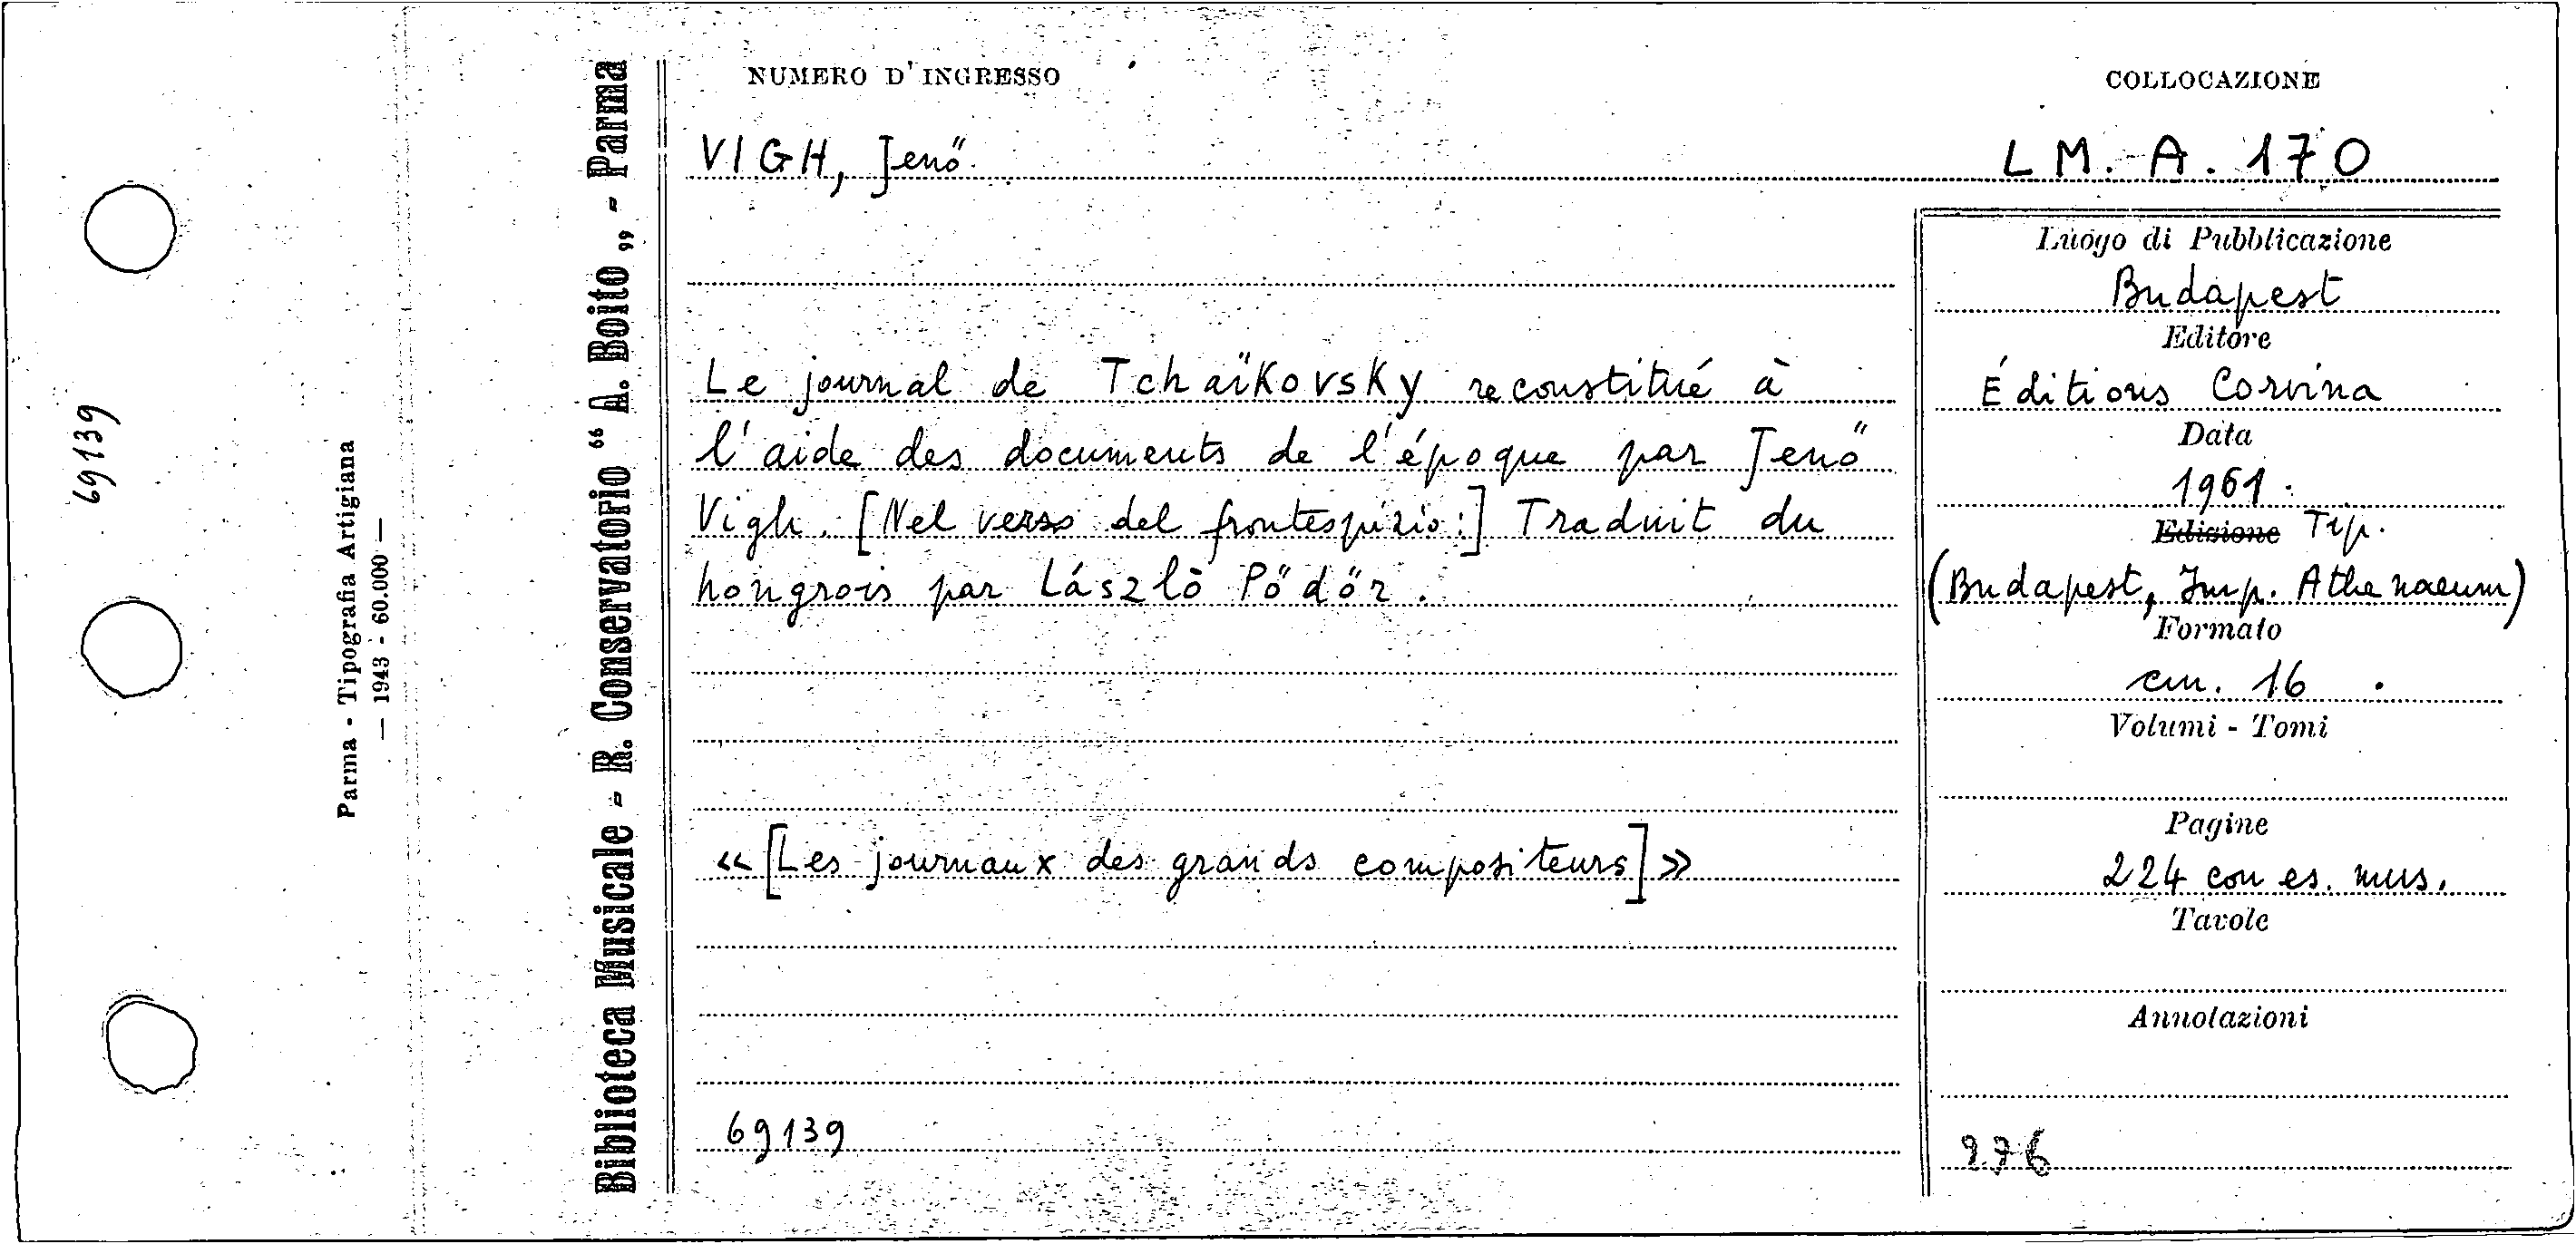 69139
Parma - Tipografia Artigiana
— 1943 - 60.000 —
Biblioteca Musicale - R. Conservatorio “ A. Boito „ - Parma
NUMERO D'INGRESSO
COLLOCAZIONE
VIGH, Jenő.
LM. A. 170
Le journal de Tchaïkovsky reconstitué à
l'aide des documents de l'époque par Jenő
Vigh. [Nel verso del frontespizio:] Traduit du
hongrois par Lászlò Pődőr.
«[Les journaux des grands compositeurs]»
69139
Luogo di Pubblicazione
Budapest
Editore
Éditions Corvina
Data
1961.
Edizione Tip.
(Budapest, Imp. Athenaeum)
Formato
cm. 16
Volumi - Tomi
Pagine
224 con es. mus.
Tavole
Annotazioni
276